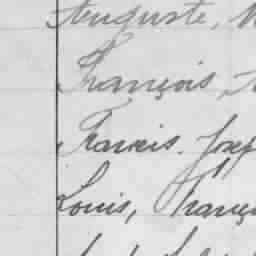 Auguste, 
François,
Francis. Josep
Louis, franç